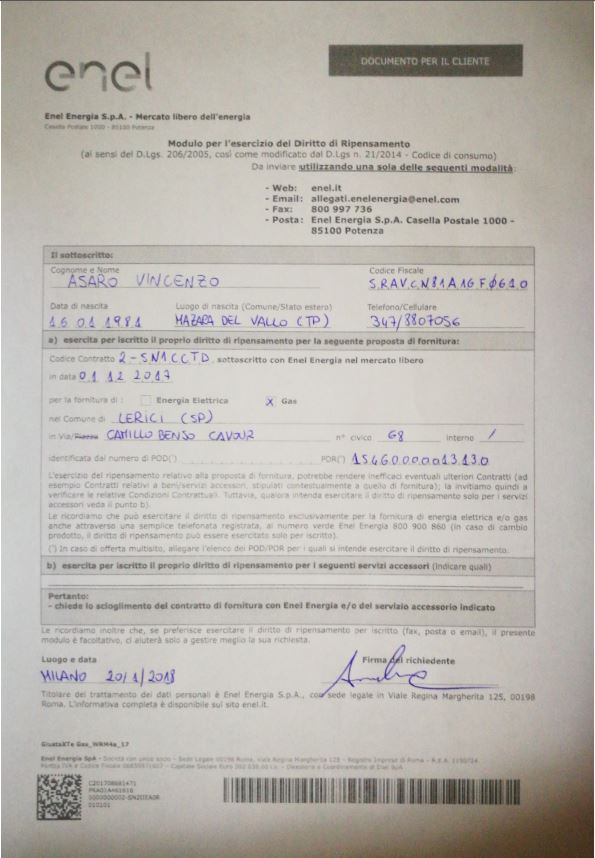 enel
DOCUMENTO PER IL CLIENTE
Enel Energia S.p.A. - Mercato libero dell'energia
Casella Postale 1000 - 85100 Potenza
Modulo per l'esercizio del Diritto di Ripensamento
(ai sensi del D.Lgs. 206/2005, così come modificato dal D.Lgs n. 21/2014 - Codice di consumo)
Da inviare utilizzando una sola delle seguenti modalità:
- Web: enel.it
- Email: allegati.enelenergia@enel.com
- Fax: 800 997 736
- Posta: Enel Energia S.p.A. Casella Postale 1000 -
85100 Potenza
Il sottoscritto:
Cognome e Nome Codice Fiscale
ASARO VINCENZO SRAVCN81A16F061O
Data di nascita Luogo di nascita (Comune/Stato estero) Telefono/Cellulare
16 01 1981 MAZARA DEL VALLO (TP) 347/8807056
a) esercita per iscritto il proprio diritto di ripensamento per la seguente proposta di fornitura:
Codice Contratto 2-SN1CCTD, sottoscritto con Enel Energia nel mercato libero
in data 01 12 2017
per la fornitura di : Energia Elettrica X Gas
nel Comune di LERICI (SP)
in Via/Piazza CAMILLO BENSO CAVOUR n° civico 68 interno /
identificata dal numero di POD(*) PDR(*) 15460000013130
L'esercizio del ripensamento relativo alla proposta di fornitura, potrebbe rendere inefficaci eventuali ulteriori Contratti (ad
esempio Contratti relativi a beni/servizi accessori, stipulati contestualmente a quello di fornitura); la invitiamo quindi a
verificare le relative Condizioni Contrattuali. Tuttavia, qualora intenda esercitare il diritto di ripensamento solo per i servizi
accessori veda il punto b).
Le ricordiamo che può esercitare il diritto di ripensamento esclusivamente per la fornitura di energia elettrica e/o gas
anche attraverso una semplice telefonata registrata, al numero verde Enel Energia 800 900 860 (in caso di cambio
prodotto, il diritto di ripensamento può essere esercitato solo per iscritto).
(*) In caso di offerta multisito, allegare l'elenco dei POD/PDR per i quali si intende esercitare il diritto di ripensamento.
b) esercita per iscritto il proprio diritto di ripensamento per i seguenti servizi accessori (indicare quali)
Pertanto:
- chiede lo scioglimento del contratto di fornitura con Enel Energia e/o del servizio accessorio indicato
Le ricordiamo inoltre che, se preferisce esercitare il diritto di ripensamento per iscritto (fax, posta o email), il presente
modulo è facoltativo, ci aiuterà solo a gestire meglio la sua richiesta.
Luogo e data Firma del richiedente
MILANO 20/1/2018
Titolare del trattamento dei dati personali è Enel Energia S.p.A., con sede legale in Viale Regina Margherita 125, 00198
Roma. L'informativa completa è disponibile su sito enel.it.
GiustaXTe Gas_WRM4a_17
Enel Energia SpA - Società con unico socio - Sede Legale 00198 Roma, Viale Regina Margherita 125 - Registro Imprese di Roma - R.E.A. 1150724
C201708681471
010101